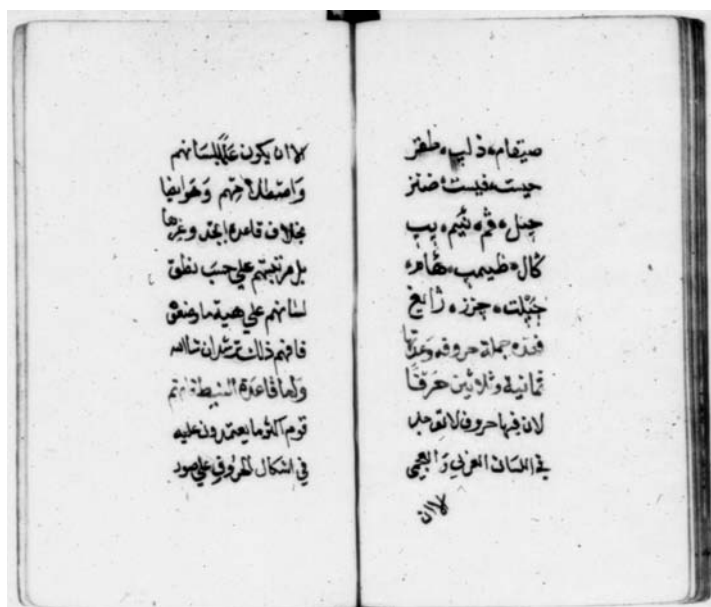 صيغام، ذليب، طفز
حيست، فيست، ضنز
كال، ظيمب، هام،
فهذه جملة حروفه وعدتها
ثمانية وثلاثين حرفًا
لان فيها حروف لا توجد
في اللسان العربي والعجمي
لا ان
لا ان يكون عالمًا بلسانهم
واصطلاحهم وهو ايضا
بخلاف قاعدة ابجد وغيرها
بل مرتبتهم علي حسب نطق
لسانهم علي هيئة ما وضعوه
فافهم ذلك ترشد ان شاالله
واما قاعدة النبطية فهم
قوم اكثر ما يعتمدون عليه
في اشكال الحروف علي صور